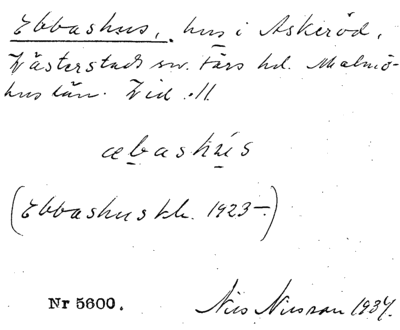 Ebbashus, hus i Askeröd,
Västerstads sn. Färs hd. Malmö-
hus län. Vid .11.
æbashús
(Ebbashus kb. 1923-.)
Nr 5600.
Nils Nilsson 1937.